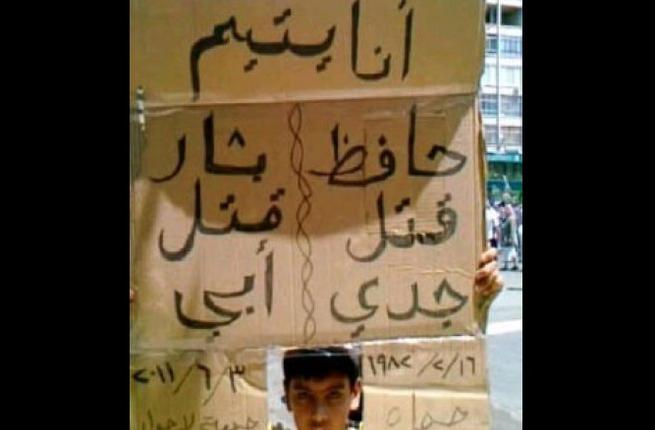 أنا يتيم
حافظ
قتل
جدي
١٩٨٢/٢/١٦
حماه
بشار
قتل
أبي
٢٠١١/٦/٣